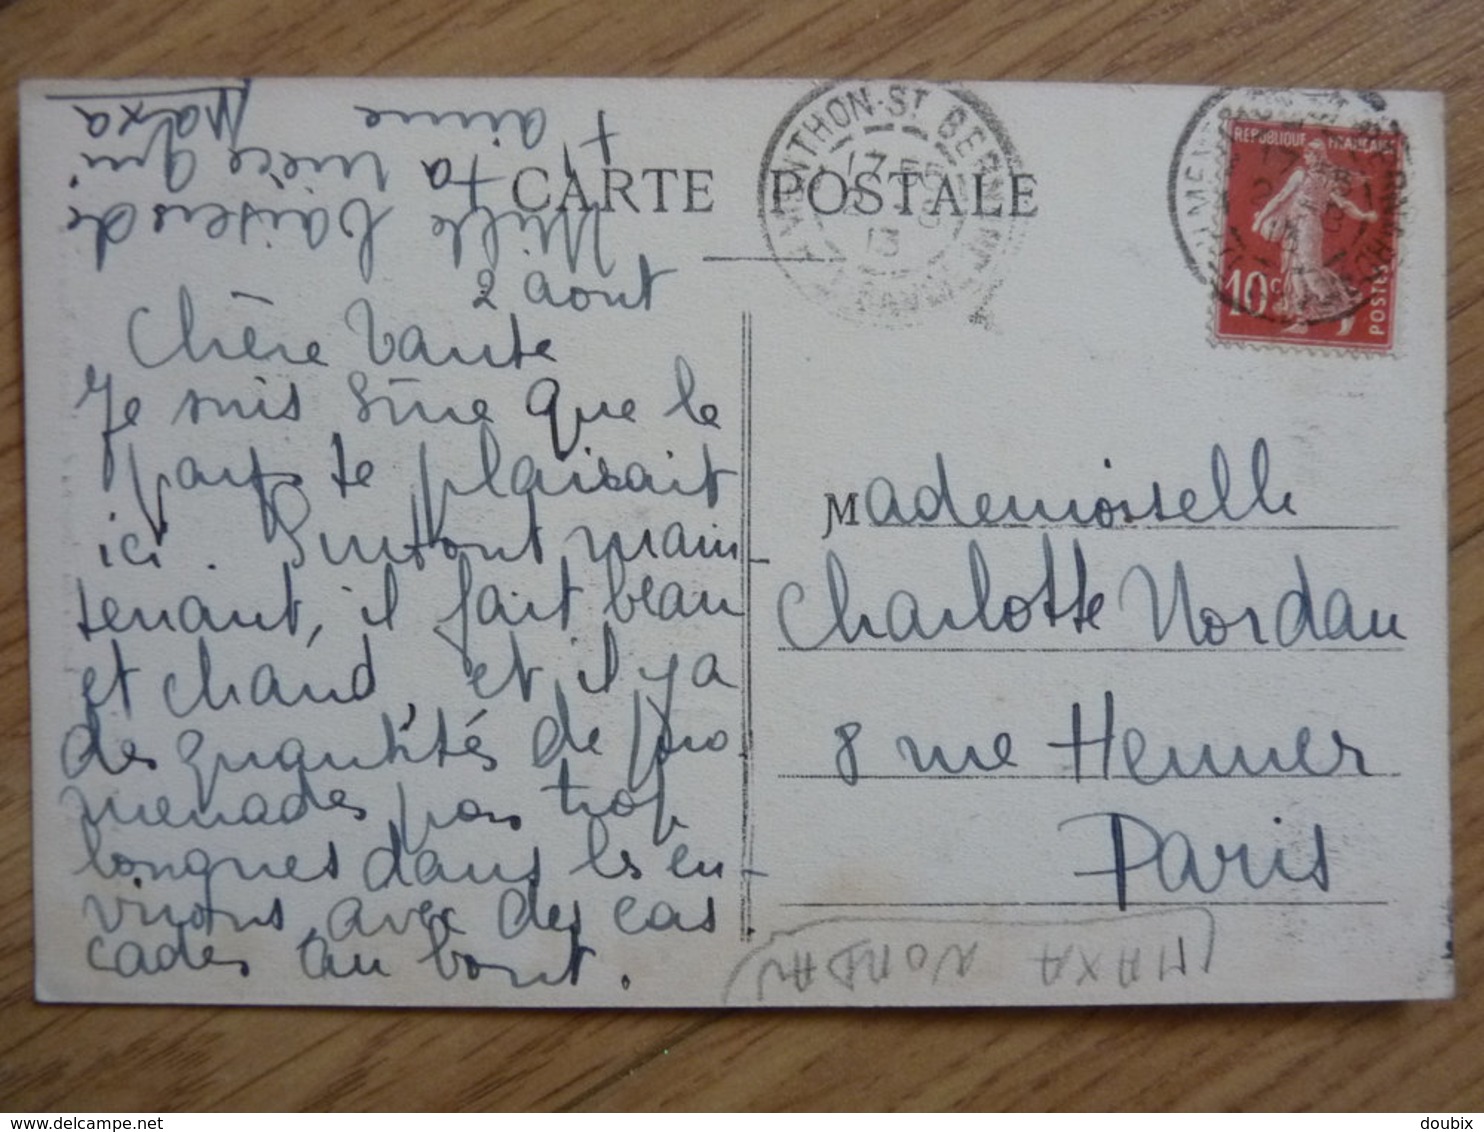 CARTE POSTALE
MENTHON-ST BERNARD
17
13
REPUBLIQUE FRANÇAISE
10c
POSTES
2 aout
Chère Tante
Je suis sûre que le
pays te plairait
ici. Surtout main-
tenant, il fait beau
et chaud, et il y a
des quantités de pro
menades pas trop
longues dans les en-
virons avec des cas
cades au bout.
Mille baisers de
ta nièce qui
t'aime
Maxa
Mademoiselle
Charlotte Nordau
8 rue Henner
Paris
MAXA NORDAU
delcampe.net
doubix